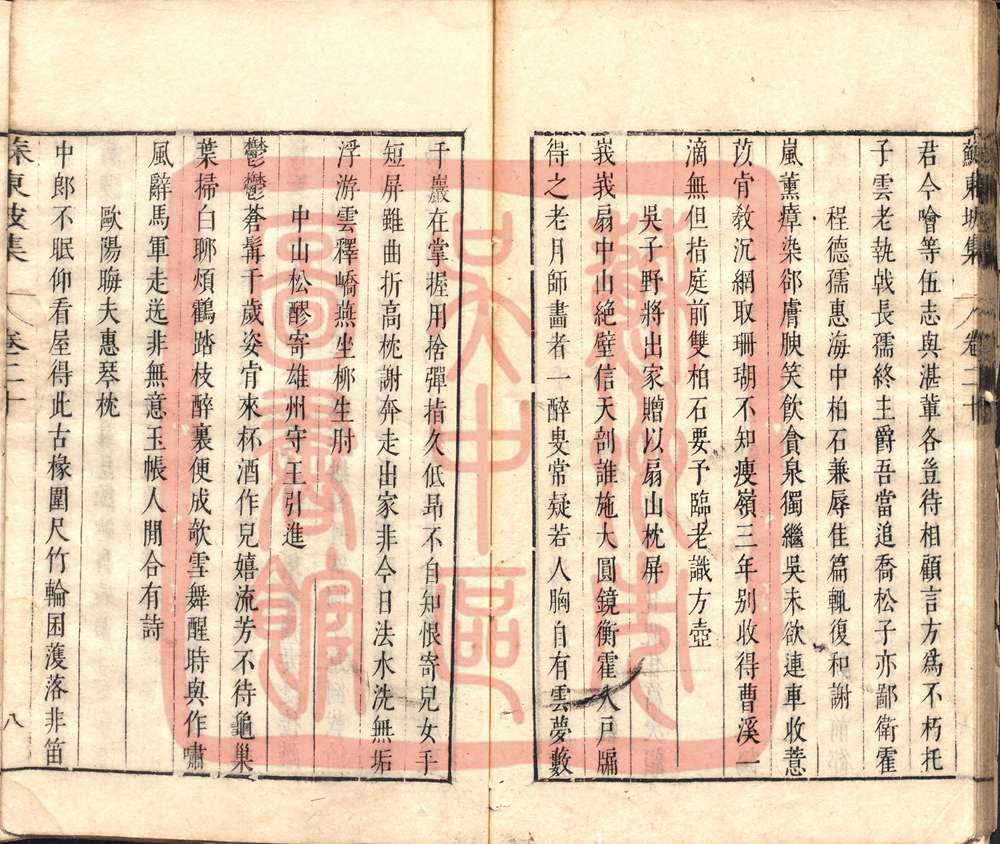 蘇東坡集 卷二十
君今噲等伍志與湛輩各豈待相顧言方爲不朽托
子雲老執戟長孺終主爵吾當追喬松子亦鄙衛霍
程德孺惠海中柏石兼辱佳篇輒復和謝
嵐薰瘴染卻膚腴笑飲貪泉獨繼吳未欲連車收薏
苡肯敎沉網取珊瑚不知痩嶺三年别收得曹溪一
滴無但指庭前雙柏石要予臨老識方壺
吳子野將出家贈以扇山枕屏
峩峩扇中山絶壁信天剖誰施大圓鏡衡霍入戸牖
得之老月師畫者一醉叟常疑若人胸自有雲夢藪
千巖在掌握用捨彈指久低昻不自知恨寄兒女手
短屏雖曲折高枕謝奔走出家非今日法水洗無垢
浮游雲釋嶠燕坐栁生肘
中山松醪寄雄州守王引進
鬱鬱蒼髯千歲姿肯來杯酒作兒嬉流芳不待龜巢
葉掃白聊煩鶴踏枝醉裏便成欹雪舞醒時與作嘯
風辭馬軍走送非無意玉帳人閒合有詩
歐陽晦夫惠琴枕
中郎不眠仰看屋得此古椽圍尺竹輪囷濩落非笛
蘇東坡集 卷二十 八